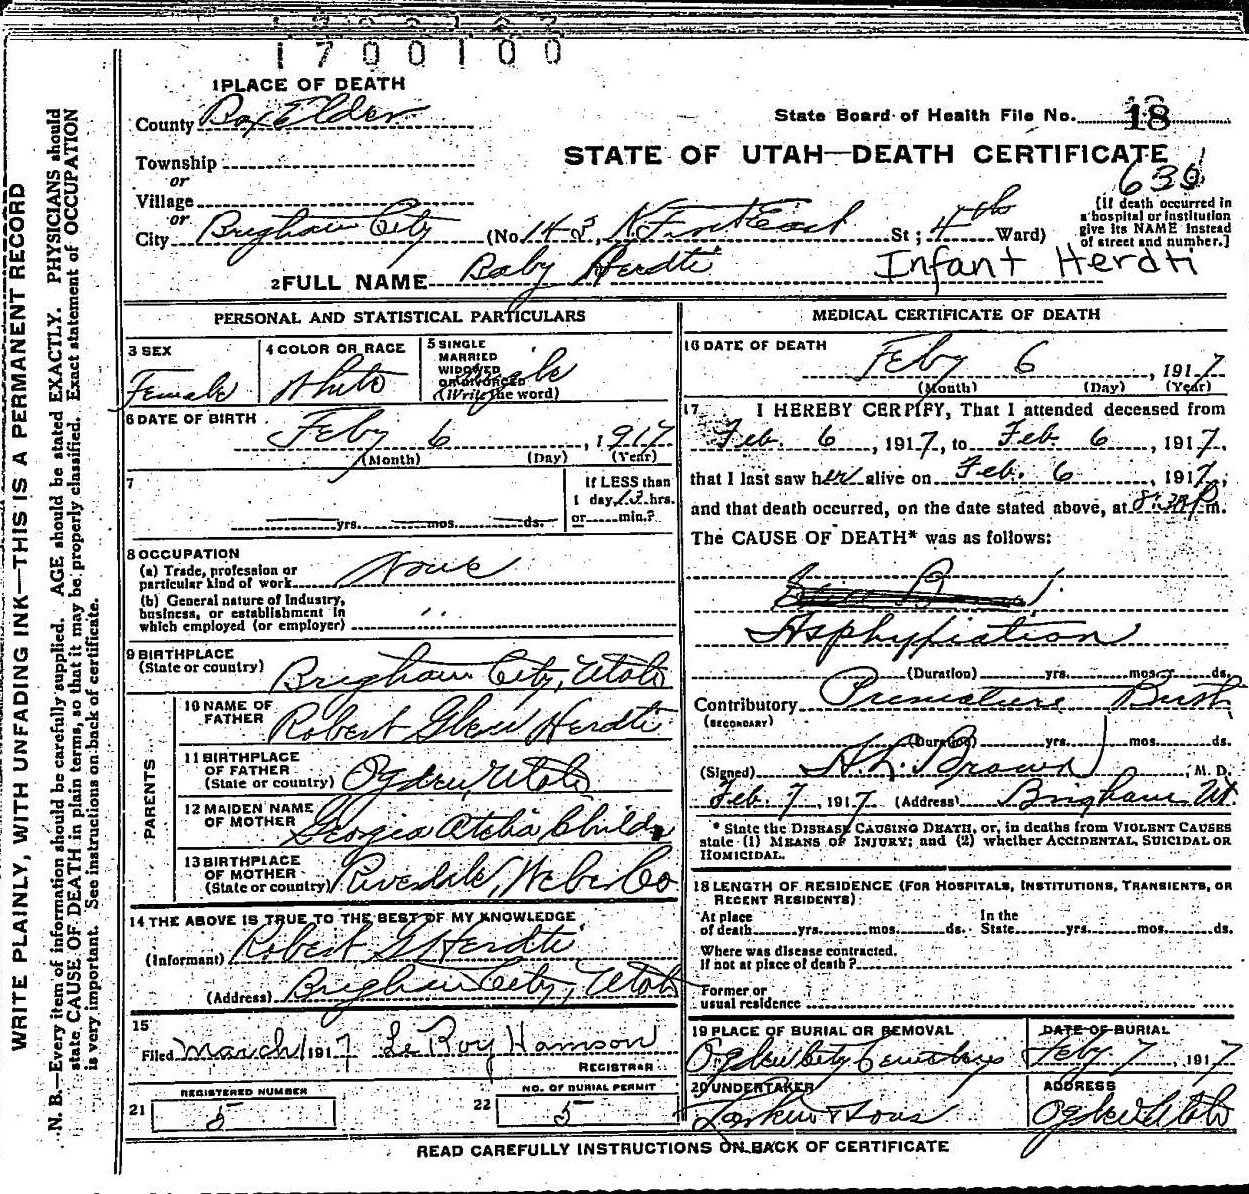 1700100
1 PLACE OF DEATH
County Box Elder
State Board of Health File No. 18
Township
or
Village
or
City Brigham City
STATE OF UTAH—DEATH CERTIFICATE
636
(No. 143, N. First East St; 4th Ward)
[If death occurred in
a hospital or institution
give its NAME instead
of street and number.]
2 FULL NAME Baby Herdti Infant Herdti
PERSONAL AND STATISTICAL PARTICULARS
3 SEX
Female
4 COLOR OR RACE
White
5 SINGLE
MARRIED
WIDOWED
OR DIVORCED
(Write the word)
Single
6 DATE OF BIRTH
Feby 6, 1917
(Month) (Day) (Year)
7
yrs. mos. ds.
If LESS than
1 day, hrs.
or min.?
8 OCCUPATION
(a) Trade, profession or
particular kind of work None
(b) General nature of Industry,
business, or establishment in
which employed (or employer)
9 BIRTHPLACE
(State or country) Brigham City, Utah
PARENTS
10 NAME OF
FATHER Robert Glenn Herdti
11 BIRTHPLACE
OF FATHER
(State or country) Ogden, Utah
12 MAIDEN NAME
OF MOTHER Georgia Atelia Childs
13 BIRTHPLACE
OF MOTHER
(State or country) Riverdale, Weber Co
14 THE ABOVE IS TRUE TO THE BEST OF MY KNOWLEDGE
(Informant) Robert G Herdti
(Address) Brigham City, Utah
15
Filed March 1 1917 Le Roy Hamson
REGISTRAR
REGISTERED NUMBER
21 5
NO. OF BURIAL PERMIT
22 5
MEDICAL CERTIFICATE OF DEATH
16 DATE OF DEATH
Feby 6, 1917
(Month) (Day) (Year)
17 I HEREBY CERTIFY, That I attended deceased from
Feb. 6, 1917, to Feb. 6, 1917,
that I last saw her alive on Feb. 6, 1917;
and that death occurred, on the date stated above, at P m.
The CAUSE OF DEATH* was as follows:
Asphyxiation
(Duration) yrs. mos. ds.
Contributory Premature Birth
(SECONDARY)
(Duration) yrs. mos. ds.
(Signed) A. L. Brown, M. D.
Feb. 7, 1917 (Address) Brigham Ut.
* State the DISEASE CAUSING DEATH, or, in deaths from VIOLENT CAUSES
state (1) MEANS OF INJURY; and (2) whether ACCIDENTAL, SUICIDAL OR
HOMICIDAL.
18 LENGTH OF RESIDENCE (FOR HOSPITALS, INSTITUTIONS, TRANSIENTS, OR
RECENT RESIDENTS)
At place
of death yrs. mos. ds. In the
State yrs. mos. ds.
Where was disease contracted.
If not at place of death?
Former or
usual residence
19 PLACE OF BURIAL OR REMOVAL
Ogden City Cemetery
DATE OF BURIAL
Feby 7, 1917
20 UNDERTAKER
Larkin & Sons
ADDRESS
Ogden Utah
READ CAREFULLY INSTRUCTIONS ON BACK OF CERTIFICATE
WRITE PLAINLY, WITH UNFADING INK—THIS IS A PERMANENT RECORD
N. B.—Every item of information should be carefully supplied. AGE should be stated EXACTLY. PHYSICIANS should
state CAUSE OF DEATH in plain terms, so that it may be properly classified. Exact statement of OCCUPATION
is very important. See instructions on back of certificate.